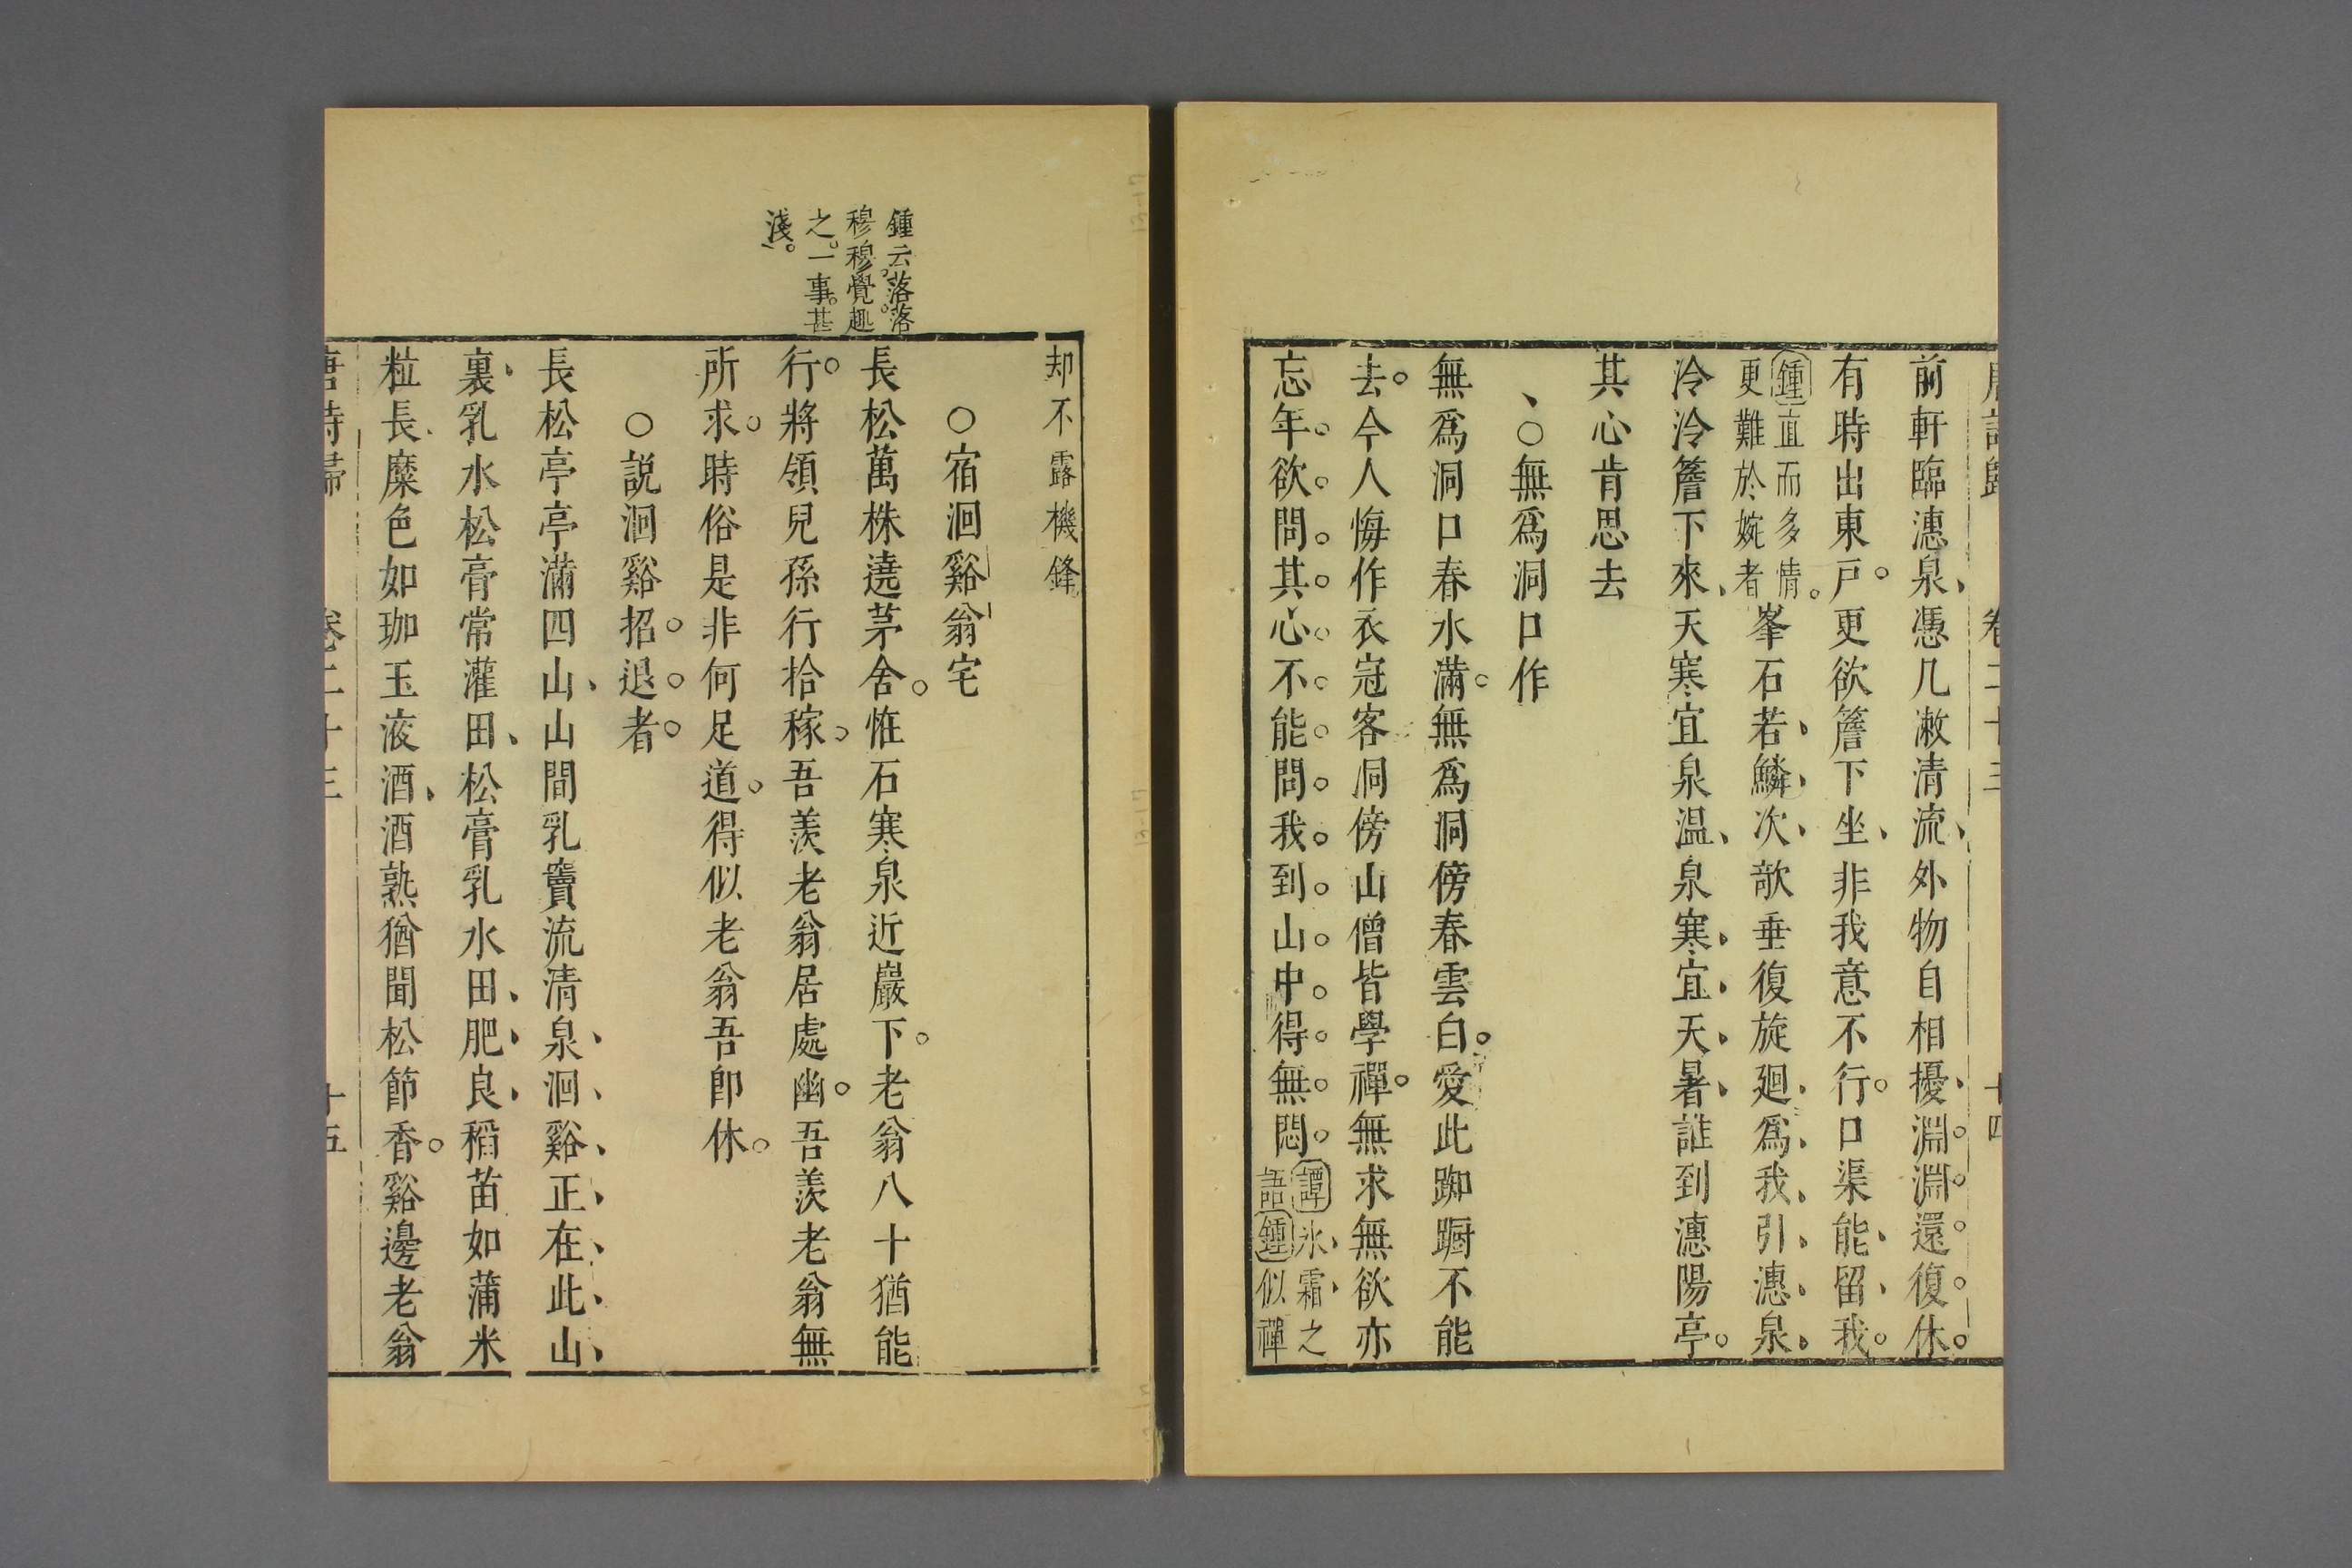 唐詩歸 卷二十三 十四
前軒臨㵙泉憑几漱清流外物自相擾淵淵還復休
有時出東戸更欲簷下坐非我意不行口渠能留我
鍾直而多情
更難於婉者
峯石若鱗次欹垂復旋廻爲我引㵙泉
泠泠簷下來天寒宜泉温泉寒宜天暑誰到㵙陽亭
其心肯思去
○無爲洞口作
無爲洞口春水滿無爲洞傍春雲白愛此踟蹰不能
去今人悔作衣冠客洞傍山僧皆學禪無求無欲亦
忘年欲問其心不能問我到山中得無悶
譚氷霜之
語鍾似禪
却不露機鋒
○宿洄谿翁宅
長松萬株遶茅舍惟石寒泉近巖下老翁八十猶能
行將領兒孫行拾稼吾羨老翁居處幽吾羨老翁無
所求時俗是非何足道得似老翁吾卽休
鍾云落落
穆穆覺趣
之一事甚
淺
○説洄谿招退者
長松亭亭滿四山山間乳竇流清泉洄谿正在此山
裏乳水松膏常灌田松膏乳水田肥良稻苗如蒲米
粒長糜色如珈玉液酒酒熟猶聞松節香谿邊老翁
唐詩歸 卷二十三 十五